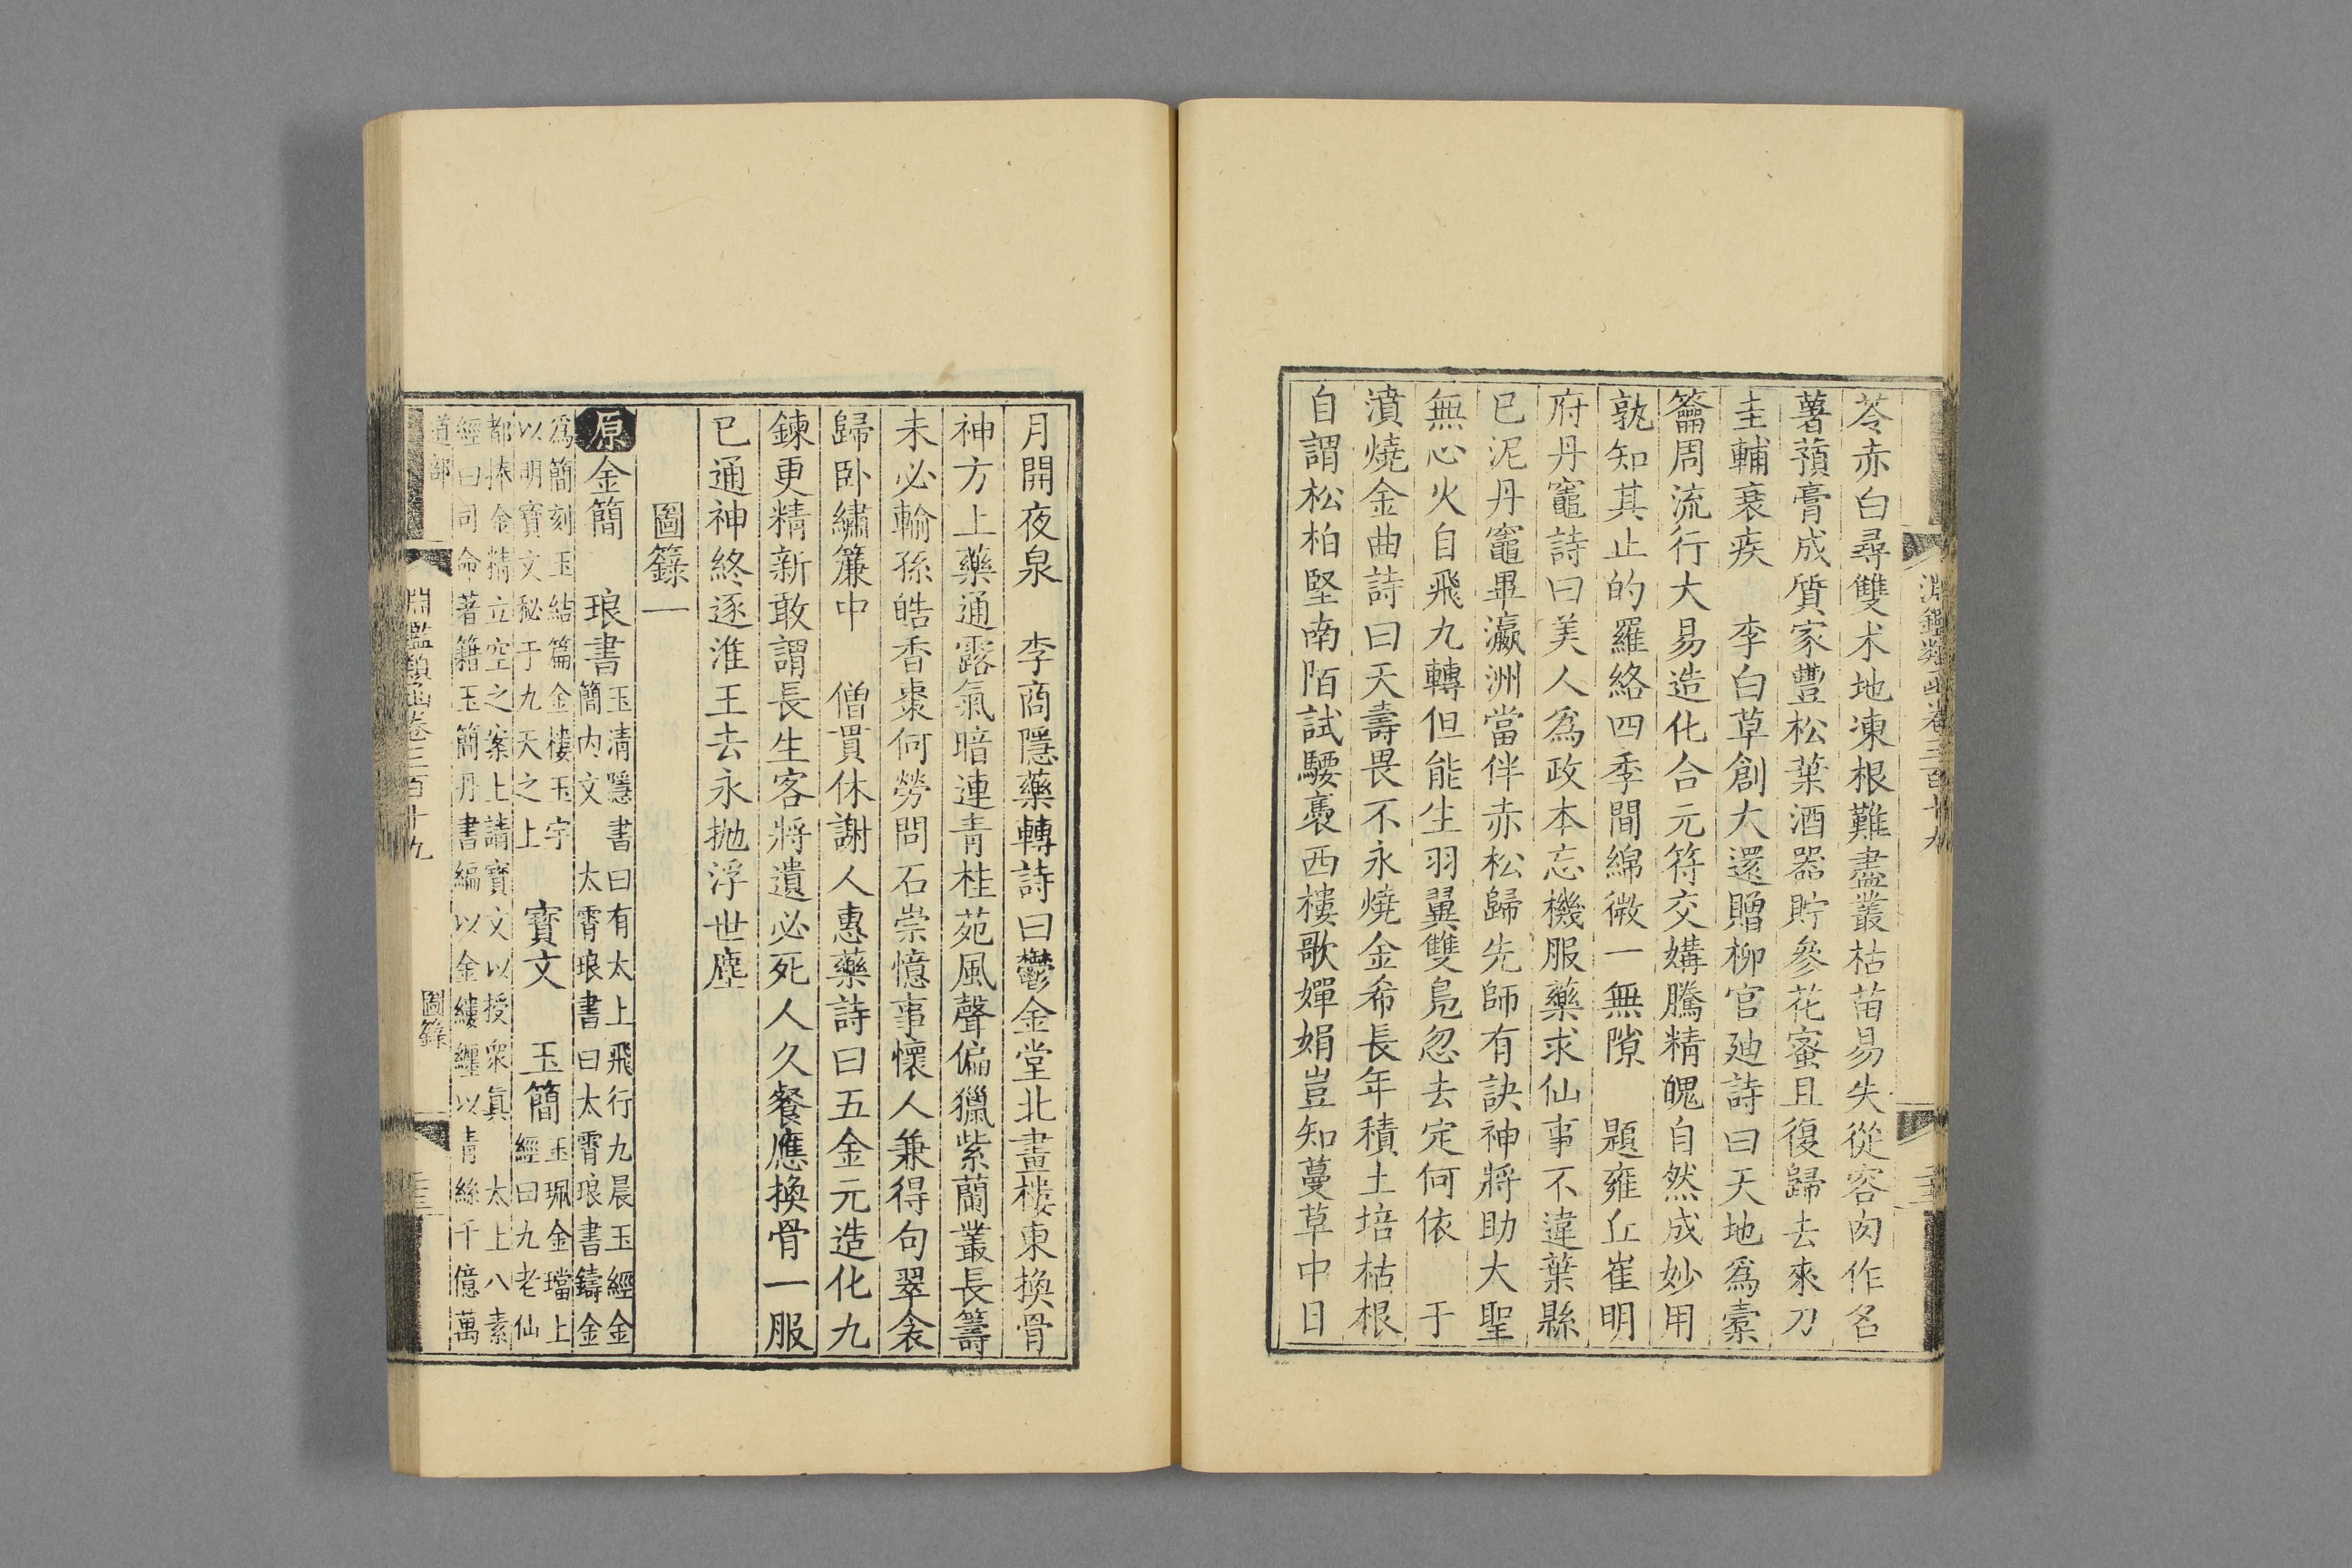 苓赤白尋雙术地凍根難盡叢枯苗易失從容肉作名
薯蕷膏成質家豐松葉酒器貯參花蜜且復歸去來刀
圭輔衰疾　李白草創大還贈柳官迪詩曰天地爲橐
籥周流行大易造化合元符交媾騰精魄自然成妙用
孰知其止的羅絡四季間綿微一無隙　題雍丘崔明
府丹竈詩曰美人爲政本忘機服藥求仙事不違葉縣
已泥丹竈畢瀛洲當伴赤松歸先師有訣神將助大聖
無心火自飛九轉但能生羽翼雙鳧忽去定何依　于
濆燒金曲詩曰天壽畏不永燒金希長年積土培枯根
自謂松柏堅南陌試騕褭西樓歌嬋娟豈知蔓草中日
月開夜泉　李商隱藥轉詩曰鬱金堂北畫樓東換骨
神方上藥通露氣暗連青桂苑風聲偏獵紫蘭叢長籌
未必輸孫皓香棗何勞問石崇憶事懷人兼得句翠衾
歸卧繡簾中　僧貫休謝人惠藥詩曰五金元造化九
鍊更精新敢謂長生客將遺必死人久餐應換骨一服
已通神終逐淮王去永抛浮世塵
圖籙一
原金簡　琅書
玉清隱書曰有太上飛行九晨玉經金
簡内文　太霄琅書曰太霄琅書鑄金
爲簡刻玉結篇金樓玉字
以明寶文秘于九天之上
寶文　玉簡
玉珮金璫上
經曰九老仙
都捧金精立空之案上請寶文以授衆眞　太上八素
經曰司命著籍玉簡丹書編以金縷纏以青絲千億萬
道部
淵鑑類函卷三百十九
圖籙